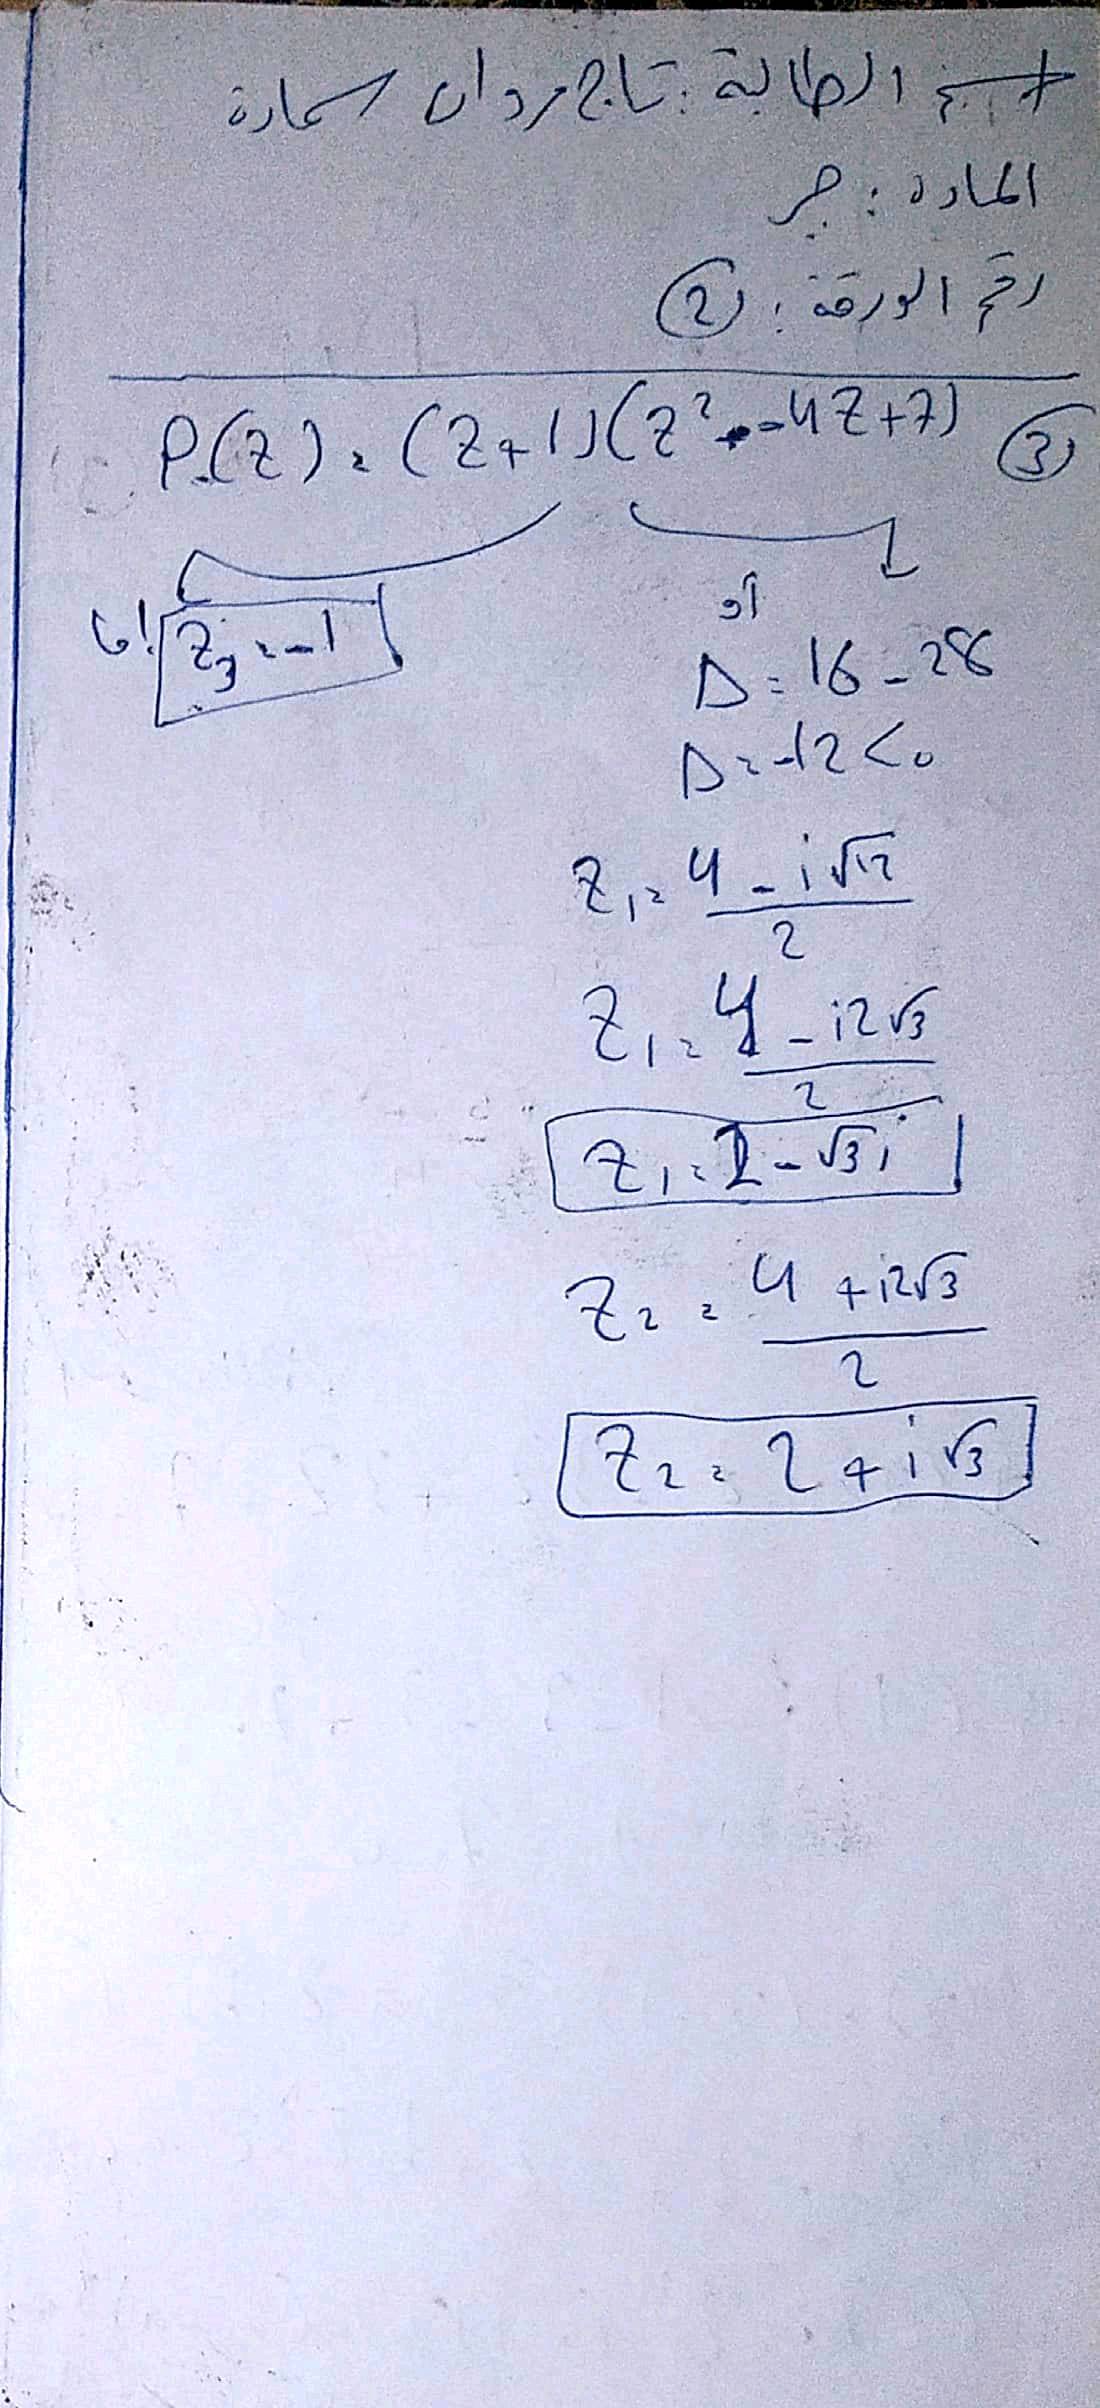 اسم الطالبة : تاج مروان سمارة
المادة : جبر
رقم الورقة : 2
P(z) = (z+1)(z² - 4z+7) 3
إما z₃ = -1
أو
Δ = 16 - 28
Δ = -12 < 0
z₁ = (4 - i√12)/2
z₁ = (4 - i2√3)/2
z₁ = 2 - √3 i
z₂ = (4 + i2√3)/2
z₂ = 2 + i√3